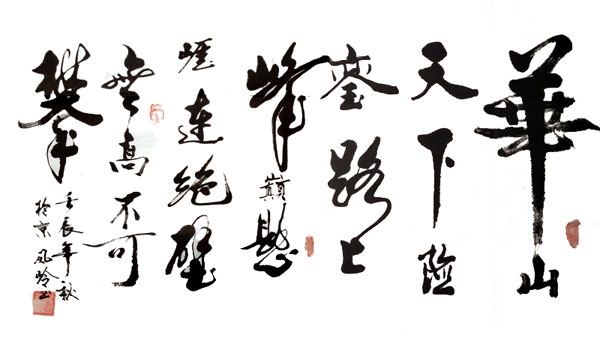 華山
天下險
路上
峰巔懸
崖連絕壁
無高不可
攀
壬辰年秋
於京